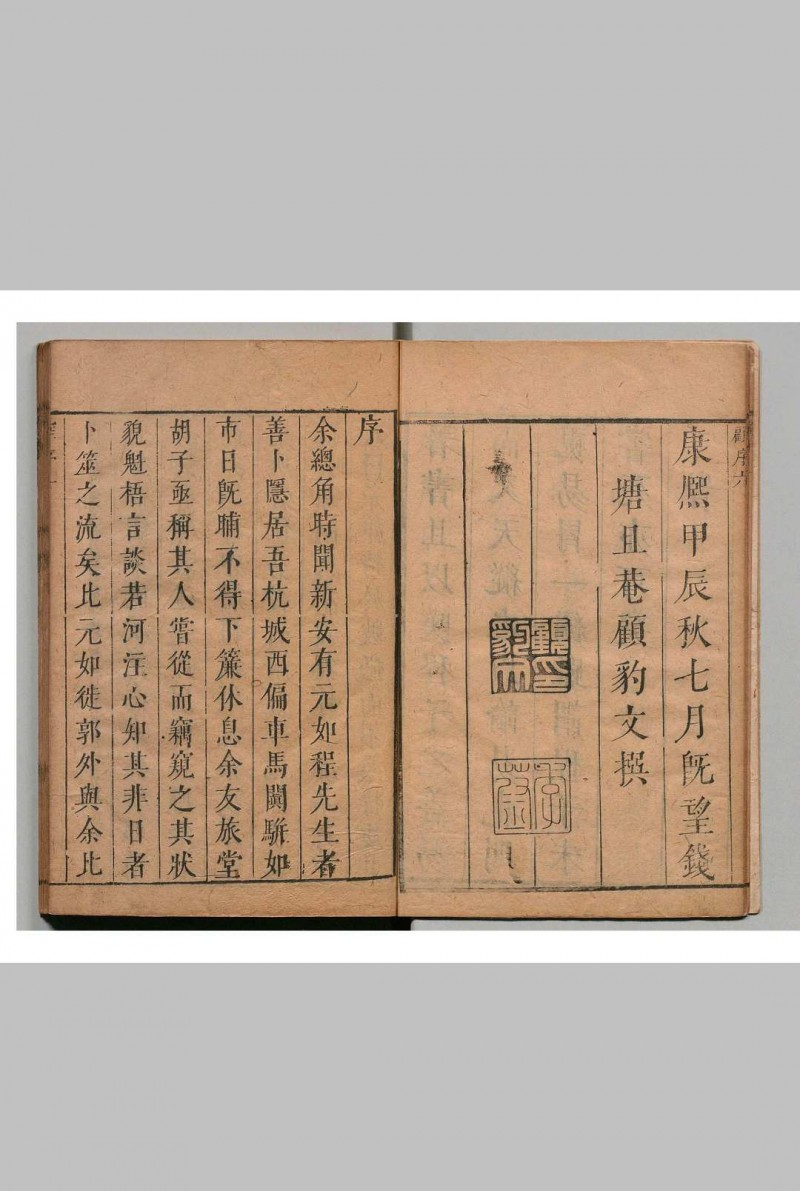 顧序六
康熈甲辰秋七月旣望錢
塘且菴顧豹文撰
顧印豹文
序
余總角時聞新安有元如程先生者
善卜隱居吾杭城西偏車馬闐駢如
市日旣晡不得下簾休息余友旅堂
胡子亟稱其人嘗從而竊窺之其狀
貌魁梧言談若河注心知其非日者
卜筮之流矣比元如徙郭外與余比